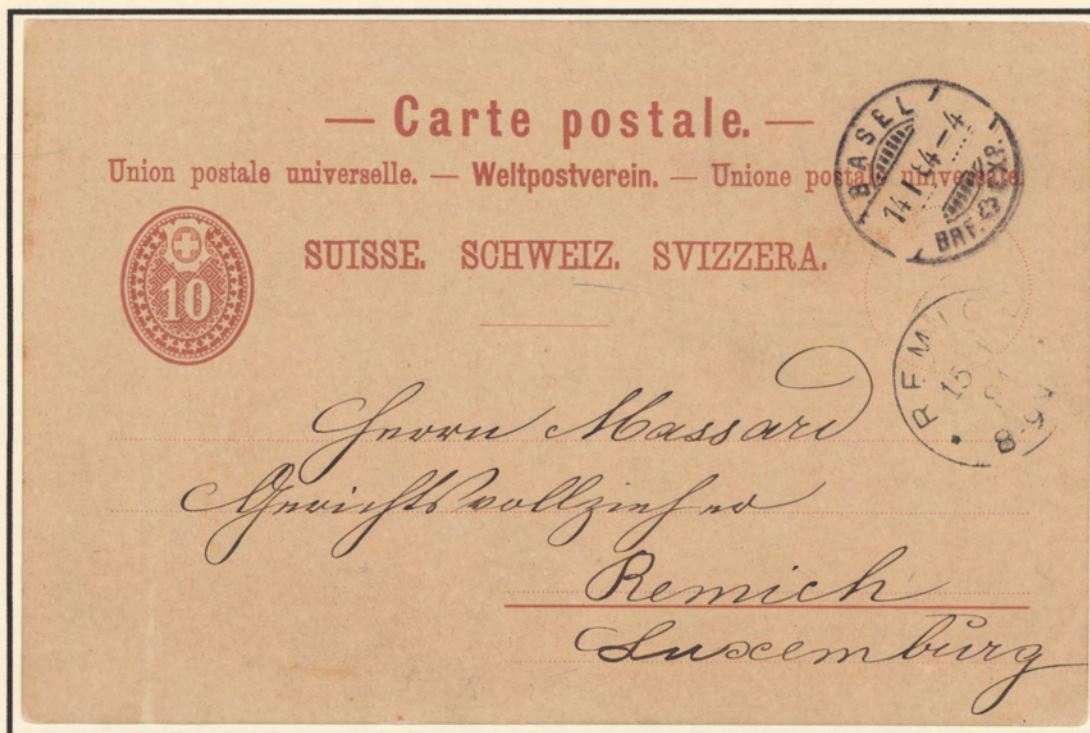 — Carte postale. —
Union postale universelle. — Weltpostverein. — Unione postale universale.
SUISSE. SCHWEIZ. SVIZZERA.
10
BASEL
14 I 84 – 4
BRF. EXP.
REMICH
15
6-8
Herrn Massard
Gerichtsvollzieher
Remich
Luxemburg